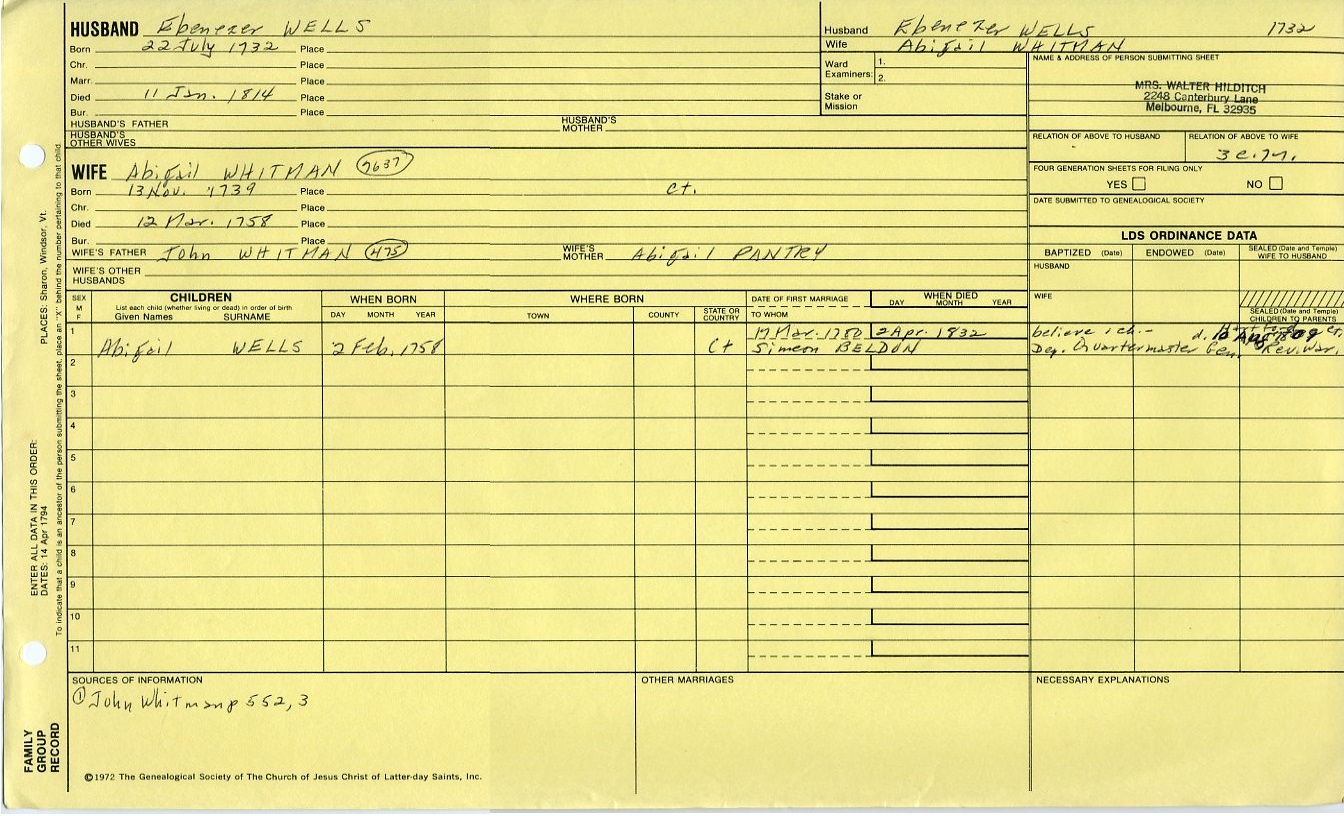 HUSBAND Ebenezer WELLS
Born 22 July 1732 Place
Chr. Place
Marr. Place
Died 11 Jan. 1814 Place
Bur. Place
HUSBAND'S FATHER HUSBAND'S MOTHER
HUSBAND'S OTHER WIVES
WIFE Abigail WHITMAN 7637
Born 13 Nov. 1739 Place Ct.
Chr. Place
Died 12 Mar. 1758 Place
Bur. Place
WIFE'S FATHER John WHITMAN 475 WIFE'S MOTHER Abigail PANTRY
WIFE'S OTHER HUSBANDS
Husband Ebenezer WELLS 1732
Wife Abigail WHITMAN
Ward Examiners: 1.
2.
Stake or Mission
NAME & ADDRESS OF PERSON SUBMITTING SHEET
MRS. WALTER HILDITCH
2248 Canterbury Lane
Melbourne, FL 32935
RELATION OF ABOVE TO HUSBAND RELATION OF ABOVE TO WIFE
3 c.7r.
FOUR GENERATION SHEETS FOR FILING ONLY
YES NO
DATE SUBMITTED TO GENEALOGICAL SOCIETY
LDS ORDINANCE DATA
BAPTIZED (Date) ENDOWED (Date) SEALED (Date and Temple) WIFE TO HUSBAND
HUSBAND
WIFE
SEALED (Date and Temple) CHILDREN TO PARENTS
SEX M F CHILDREN WHEN BORN WHERE BORN DATE OF FIRST MARRIAGE WHEN DIED
List each child (whether living or dead) in order of birth
Given Names SURNAME DAY MONTH YEAR TOWN COUNTY STATE OR COUNTRY TO WHOM DAY MONTH YEAR
1 17 Mar. 1780 2 Apr. 1832 believe 1 ch.- d. Hartford Ct.
Abigail WELLS 2 Feb. 1758 Ct Simeon BELDON Dep. Quartermaster Gen. Rev. War.
2
3
4
5
6
7
8
9
10
11
SOURCES OF INFORMATION
① John Whitman p 552, 3
OTHER MARRIAGES
NECESSARY EXPLANATIONS
©1972 The Genealogical Society of The Church of Jesus Christ of Latter-day Saints, Inc.
FAMILY GROUP RECORD
ENTER ALL DATA IN THIS ORDER:
DATES: 14 Apr 1794
PLACES: Sharon, Windsor, Vt.
To indicate that a child is an ancestor of the person submitting the sheet, place an "X" behind the number pertaining to that child.